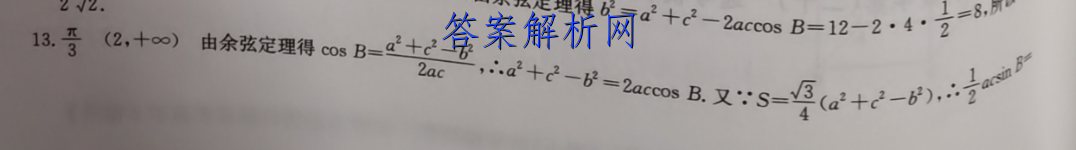 2√2.
b²=a²+c²−2accos B=12−2·4·1/2=8,所
答案解析网
13. π/3 (2,+∞) 由余弦定理得 cos B=(a²+c²−b²)/(2ac),∴a²+c²−b²=2accos B. 又∵S=√3/4(a²+c²−b²),∴1/2 acsin B=